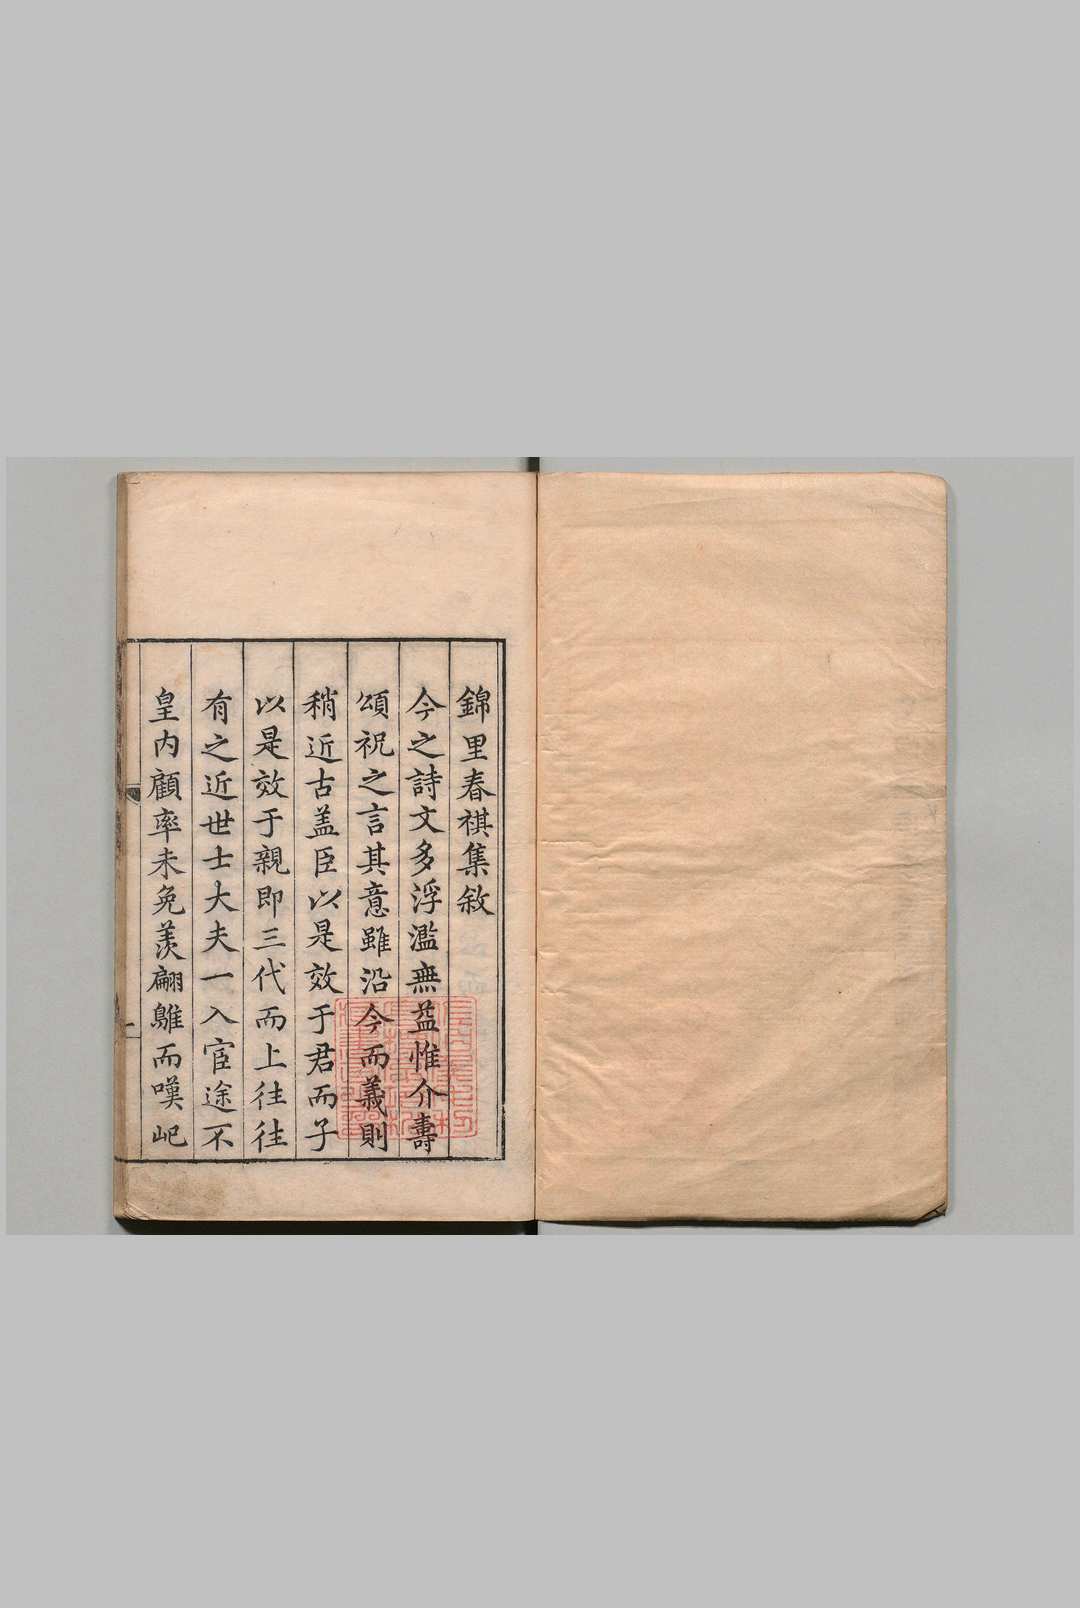 錦里春祺集敘
今之詩文多浮濫無益惟介壽
頌祝之言其意雖沿今而義則
稍近古盖臣以是效于君而子
以是效于親即三代而上往往
有之近世士大夫一入宦途不
皇内顧率未免羨翩鵻而嘆屺